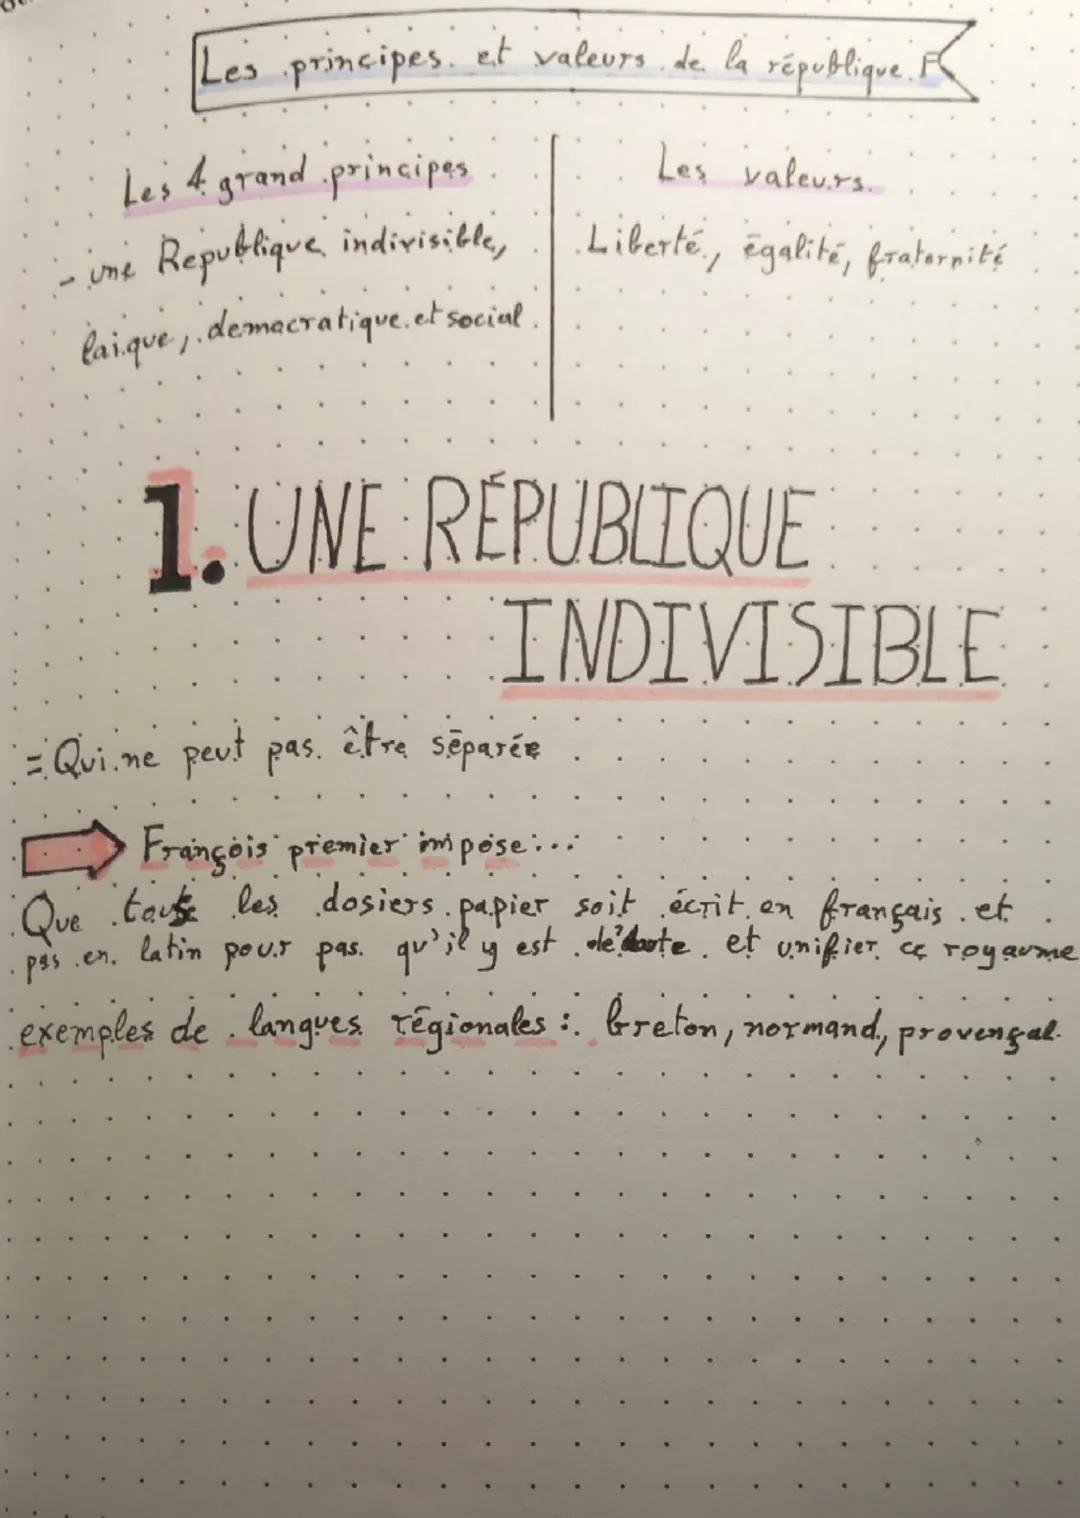 Les principes et valeurs de la république F
Les 4 grand principes
Les valeurs
- une Republique indivisible,
Liberté, égalité, fraternité
laique, democratique et social
1. UNE RÉPUBLIQUE
INDIVISIBLE
= Qui ne peut pas être séparée
François premier impose :...
Que les dosiers papier soit écrit en français et
pas en latin pour pas qu'il y est de doute et unifier ce royaume
exemples de langues régionales : breton, normand, provençal